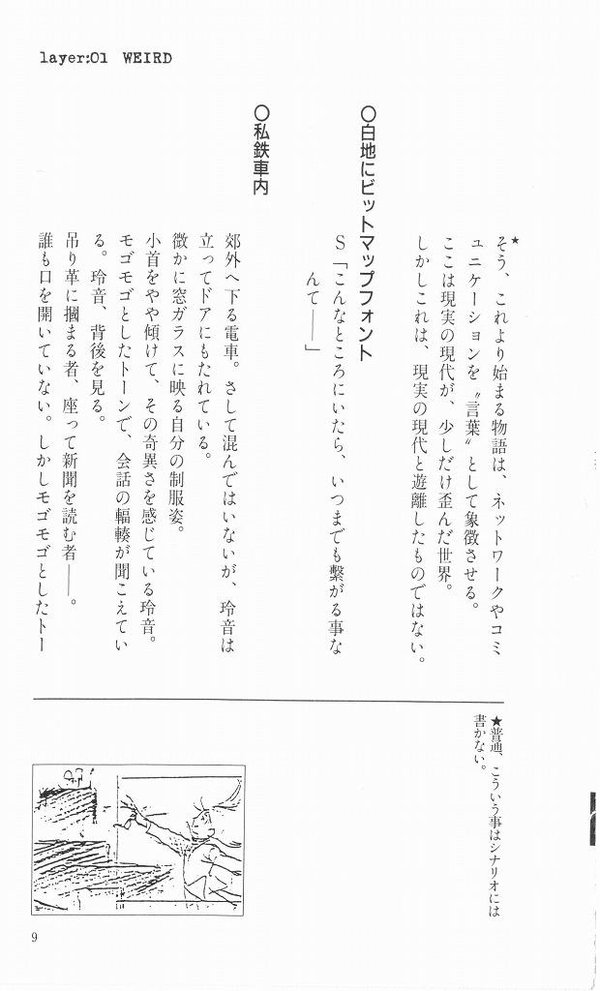 layer:01 WEIRD
★そう、これより始まる物語は、ネットワークやコミ
ュニケーションを〝言葉〟として象徴させる。
ここは現実の現代が、少しだけ歪んだ世界。
しかしこれは、現実の現代と遊離したものではない。
○白地にビットマップフォント
S「こんなところにいたら、いつまでも繋がる事な
んて――」
○私鉄車内
郊外へ下る電車。さして混んではいないが、玲音は
立ってドアにもたれている。
微かに窓ガラスに映る自分の制服姿。
小首をやや傾けて、その奇異さを感じている玲音。
モゴモゴとしたトーンで、会話の輻輳が聞こえてい
る。玲音、背後を見る。
吊り革に摑まる者、座って新聞を読む者――。
誰も口を開いていない。しかしモゴモゴとしたトー
★普通、こういう事はシナリオには
書かない。
9